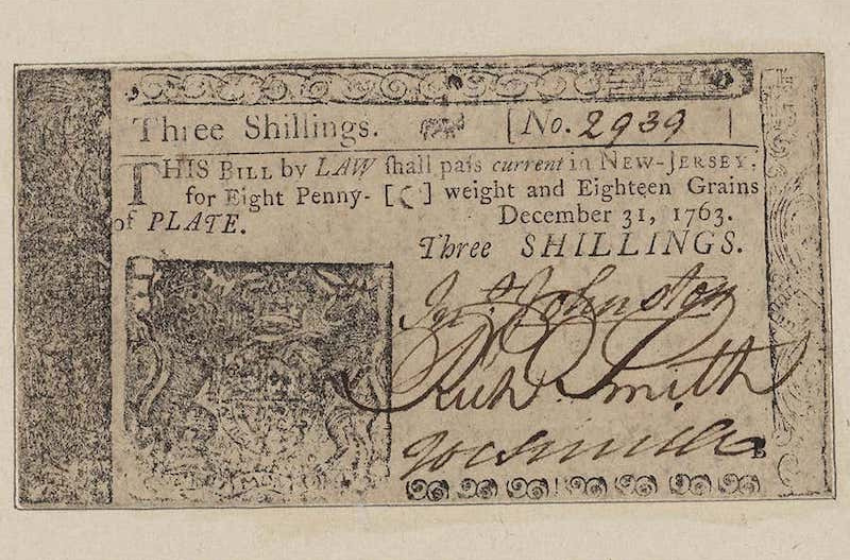 Three Shillings. [No. 2939]
THIS BILL by LAW shall pass current in NEW-JERSEY,
for Eight Penny- [ ] weight and Eighteen Grains
of PLATE. December 31, 1763.
Three SHILLINGS.
Jn.º Johnston
Rich.d Smith
B